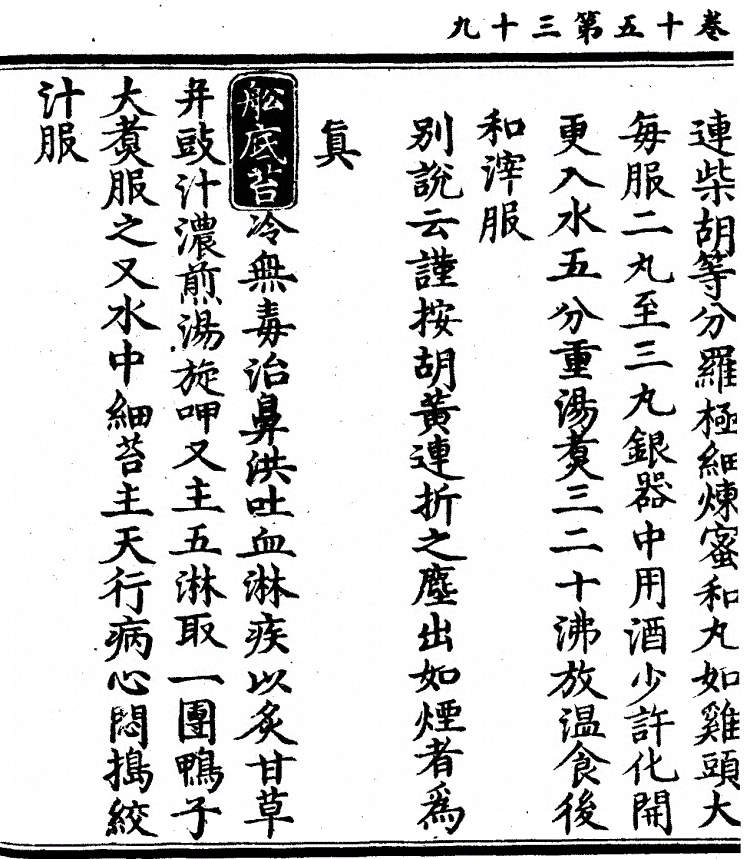 卷十五第三十九
連柴胡等分羅極細煉蜜和丸如雞頭大
每服二丸至三丸銀器中用酒少許化開
更入水五分重湯煑三二十沸放温食後
和滓服
別說云謹按胡黃連折之塵出如煙者爲
眞
船底苔冷無毒治鼻洪吐血淋疾以炙甘草
幷豉汁濃煎湯旋呷又主五淋取一團鴨子
大煑服之又水中細苔主天行病心悶搗絞
汁服